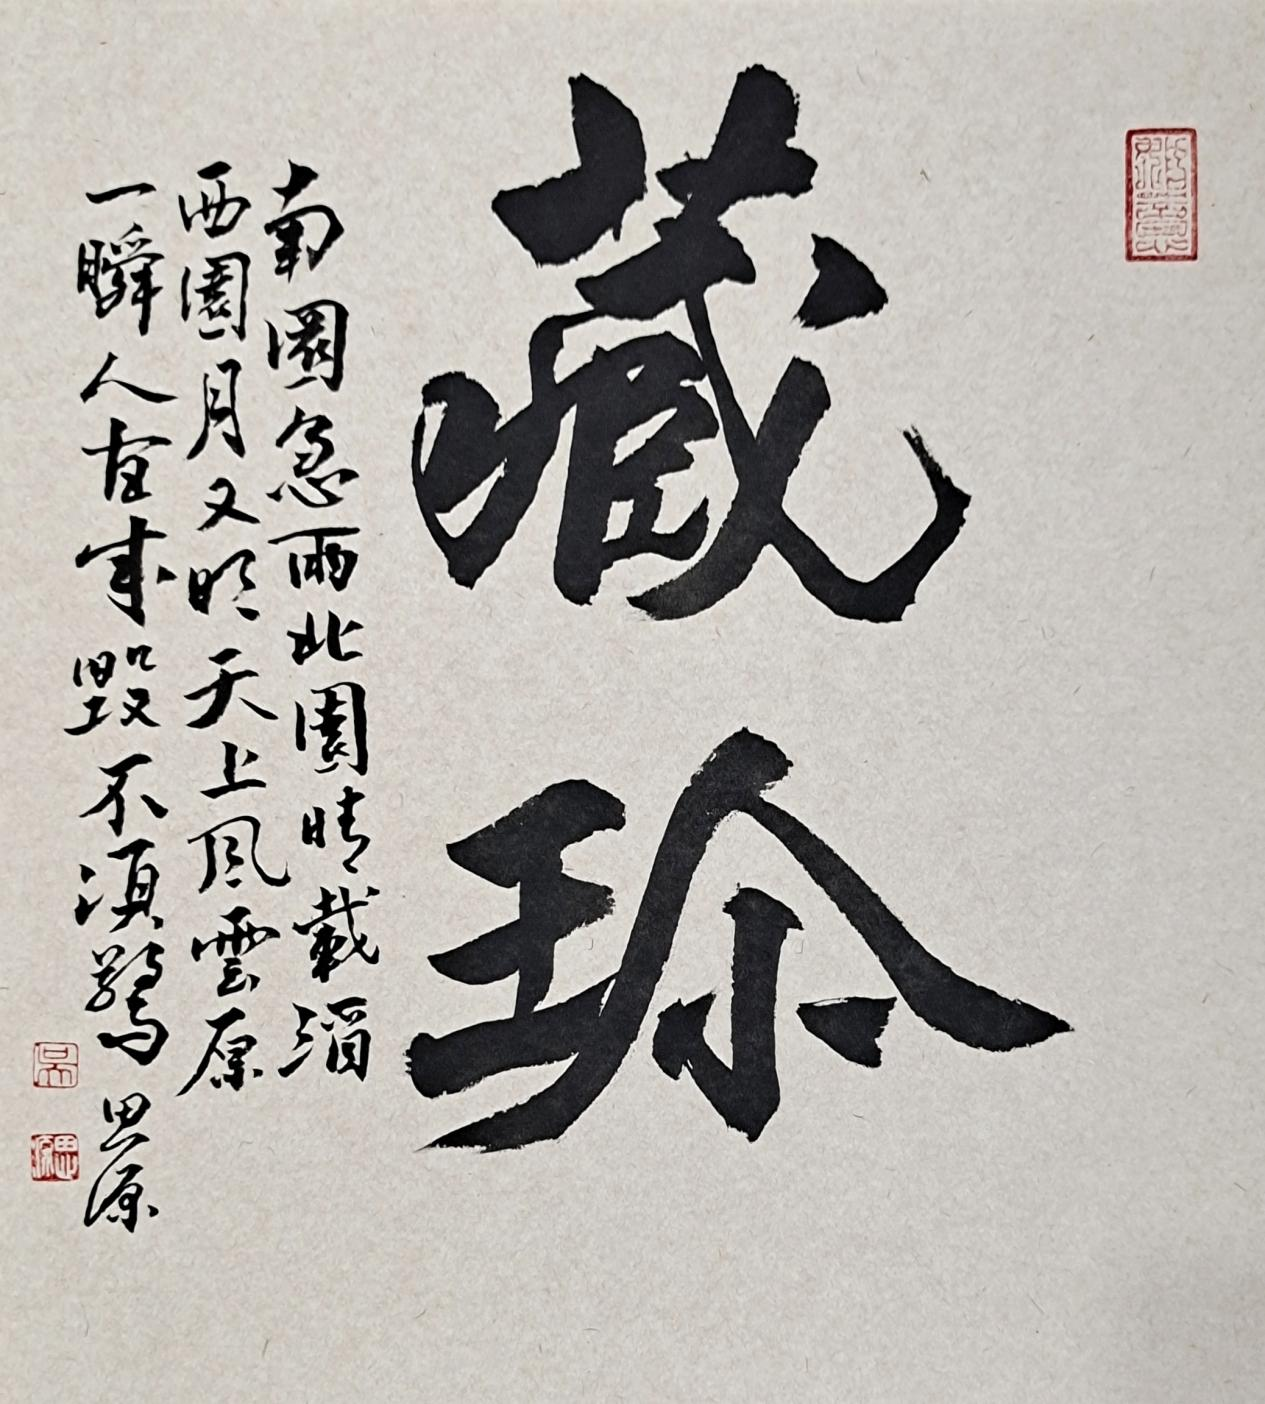 藏珎
南園急雨北園晴載酒
西園月又明天上風雲原
一瞬人有成毀不須驚思源
吴
思源